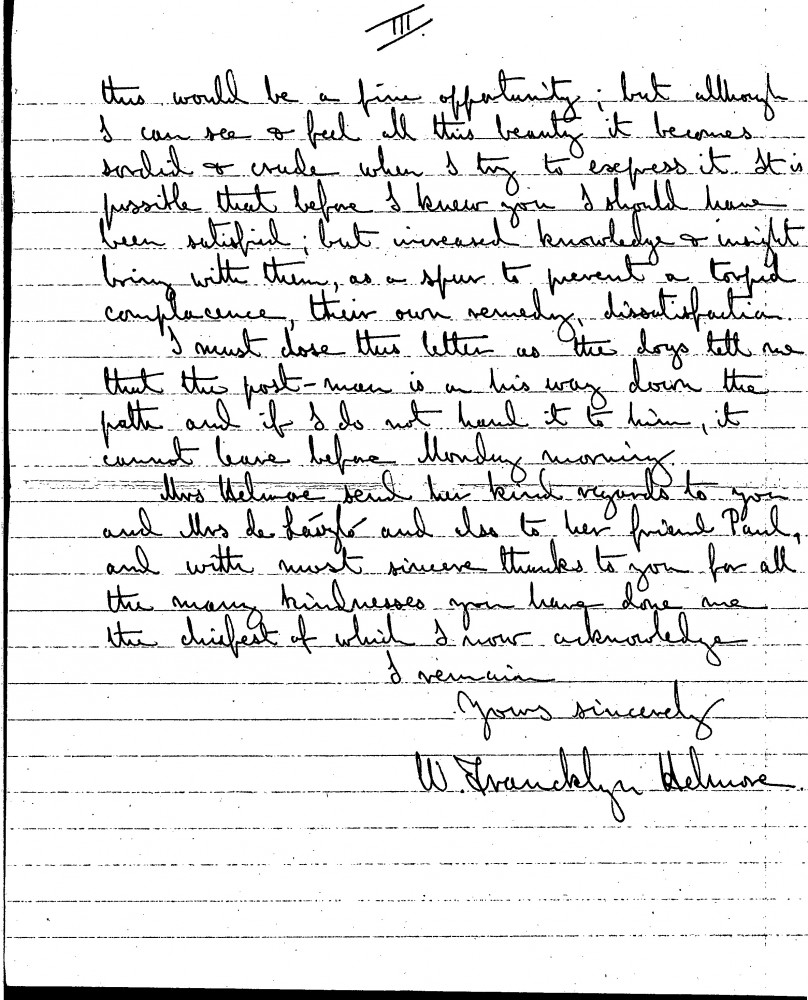 III.
this would be a fine opportunity; but although
I can see & feel all this beauty it becomes
sordid & crude when I try to express it. It is
possible that before I knew you I should have
been satisfied; but increased knowledge & insight
bring with them, as a spur to prevent a torpid
complacence, their own remedy, dissatisfaction.
I must close this letter as the dogs tell me
that the post-man is on his way down the
path and if I do not hand it to him, it
cannot leave before Monday morning.
Mrs Helmore send her kind regards to you
and Mrs de László and also to her friend Paul,
and with most sincere thanks to you for all
the many kindnesses you have done me
the chiefest of which I now acknowledge
I remain
Yours sincerely
W. Francklyn Helmore.